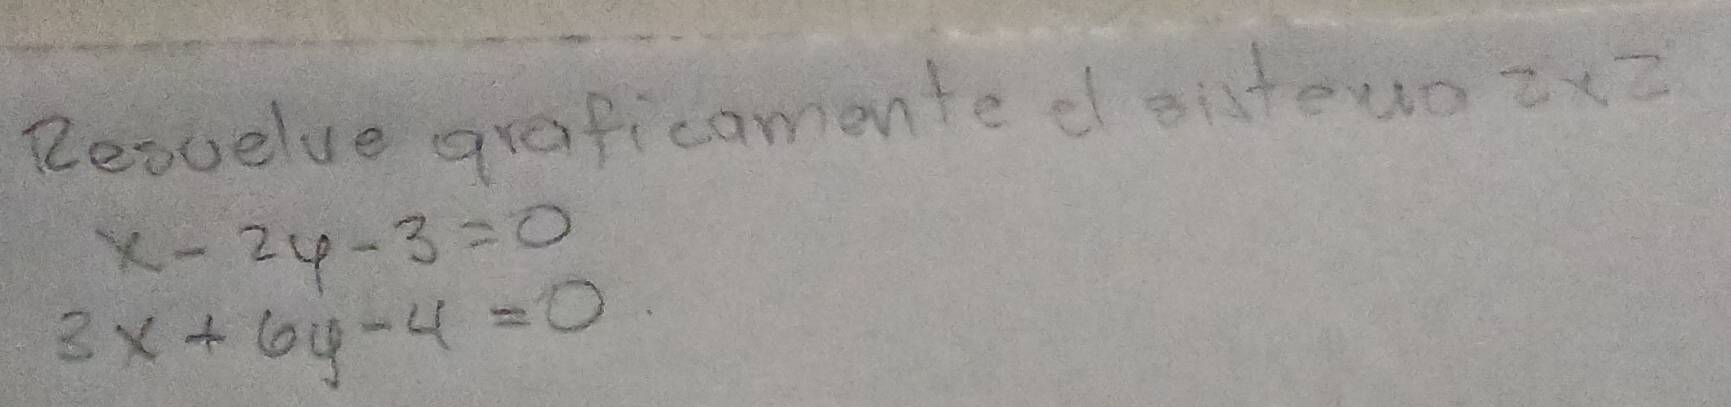 Resuelve graficamente el sistema 2x2
x - 2y - 3 = 0
3x + 6y - 4 = 0.